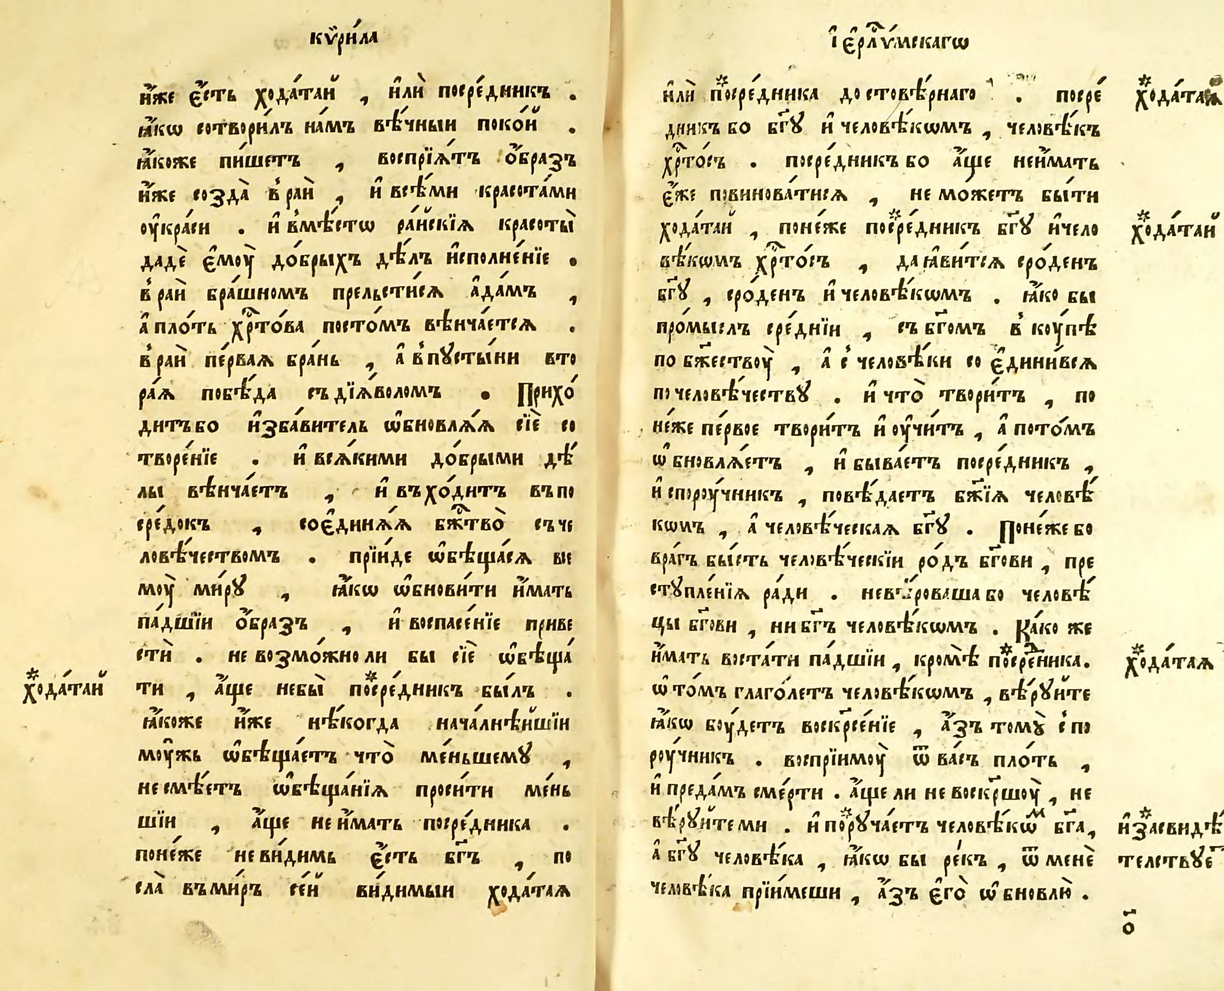 кѷри́ла
и҆́же є҆́сть хода́тай , и҆лѝ посре́дникъ .
ꙗ҆́кѡ сотвори́лъ на́мъ вѣ́чныи поко́й .
ꙗ҆́коже пи́шетъ , воспрїѧ́тъ ѻ҆́браз̾
и҆́же созда̀ в̾ рай , и҆ всѣ́ми красота́ми
ᲂу҆кра́си . и҆ вмѣ́стѡ ра́йскїѧ красоты̀
дадѐ є҆мꙋ̀ до́брыхъ дѣ́лъ и҆сполне́нїе .
в̾ рай бра́шномъ прельсти́сѧ а҆да́мъ ,
а҆ пло́ть хр҇то́ва посто́мъ вѣнча́етсѧ .
в̾ рай пе́рваѧ бра́нь , а҆ в̾ пꙋсты́ни вто
ра́ѧ побѣ́да съ дїѧ́воломъ . Прихо́
дитъ бо и҆зба́витель ѡ҆бновлѧ́ѧ сїѐ со
творе́нїе . и҆ всѧ́кими до́брыми дѣ́
лы вѣнча́етъ , и҆ въхо́дитъ въ по
сре́докъ , соєдинѧ́ѧ бж҇тво̀ съ че
лове́чествомъ . прїи́де ѡ҆бѣща́сѧ все
мꙋ̀ ми́рꙋ , ꙗ҆́кѡ ѡ҆бнови́ти и҆́мать
па́дшїи ѻ҆́браз̾ , и҆ воспасе́нїе приве
стѝ . не возмо́жно ли бы сїѐ ѡ҆бѣща́
ти , а҆́ще не бы̀ посре́дникъ бы́лъ .
хода́тай
ꙗ҆́коже и҆́же нѣ́когда нача́лнѣйшїи
мꙋ́жь ѡ҆бѣща́етъ что̀ ме́ньшемꙋ ,
не смѣ́етъ ѡ҆бѣща́нїѧ проси́ти ме́нь
шїи , а҆́ще не и҆́мать посре́дника .
поне́же неви́димь є҆́сть бг҃ъ , по
сла̀ въ ми́ръ се́й ви́димыи хода́таѧ
і҆єрⷭ҇ли́мскагѡ
и҆лѝ посре́дника достовѣ́рнаго . посре́
хода́таѧ
дникъ бо бг҃ꙋ и҆ человѣ́кѡмъ , человѣ́къ
хр҇то́съ . посре́дникъ бо а҆́ще не и҆́мать
є҆́же повинова́тисѧ , не мо́жетъ бы́ти
хода́тай , поне́же посре́дникъ бг҃ꙋ и҆ чело
хода́тай
вѣ́кѡмъ хр҇то́съ , да ꙗ҆ви́тсѧ сро́денъ
бг҃ꙋ , сро́денъ и҆ человѣ́кѡмъ . ꙗ҆́ко бы
про́мыслъ сре́днїи , съ бг҃омъ в̾ кꙋ́пѣ
по бж҇ествꙋ̀ , а҆ с̾ человѣ́ки со є҆дини́всѧ
по человѣ́чествꙋ . и҆ что̀ твори́тъ , по
не́же пе́рвое твори́тъ и҆ ᲂу҆чи́тъ , а҆ пото́мъ
ѡ҆бновлѧ́етъ , и҆ быва́етъ посре́дникъ ,
и҆ спорꙋ́чникъ , повѣ́даетъ бж҃їѧ человѣ́
кѡмъ , а҆ человѣ́ческаѧ бг҃ꙋ . Поне́же бо
вра́гъ бы́сть человѣ́ческїи ро́дъ бг҃ови , пре
стꙋпле́нїѧ ра́ди . не вѣ́роваша бо человѣ́
цы бг҃ови , ни бг҃ъ человѣ́кѡмъ . Ка́ко же
и҆́мать воста́ти па́дшїи , кро́мѣ посре́ника .
хода́таѧ
ѡ҆ то́мъ глаго́летъ человѣ́кѡмъ , вѣ́рꙋйте
ꙗ҆́кѡ бꙋ́детъ воскрⷭ҇е́нїе , а҆́зъ томꙋ̀ с̾ по
рꙋ́чникъ . воспрїимꙋ̀ ѿ ва́съ пло́ть ,
и҆ преда́мъ сме́рти . а҆́ще ли не воскрⷭ҇шꙋ̀ , не
вѣ́рꙋйте ми . и҆ порꙋча́етъ человѣ́кѡⷨ бг҃а ,
и҆ засвидѣ́
а҆ бг҃ꙋ человѣ́ка , ꙗ҆́кѡ бы ре́къ , ѿ менѐ
телствꙋеⷮ
человѣ́ка прїи́меши , а҆́зъ є҆го̀ ѡ҆бновлю̀ .
о҃